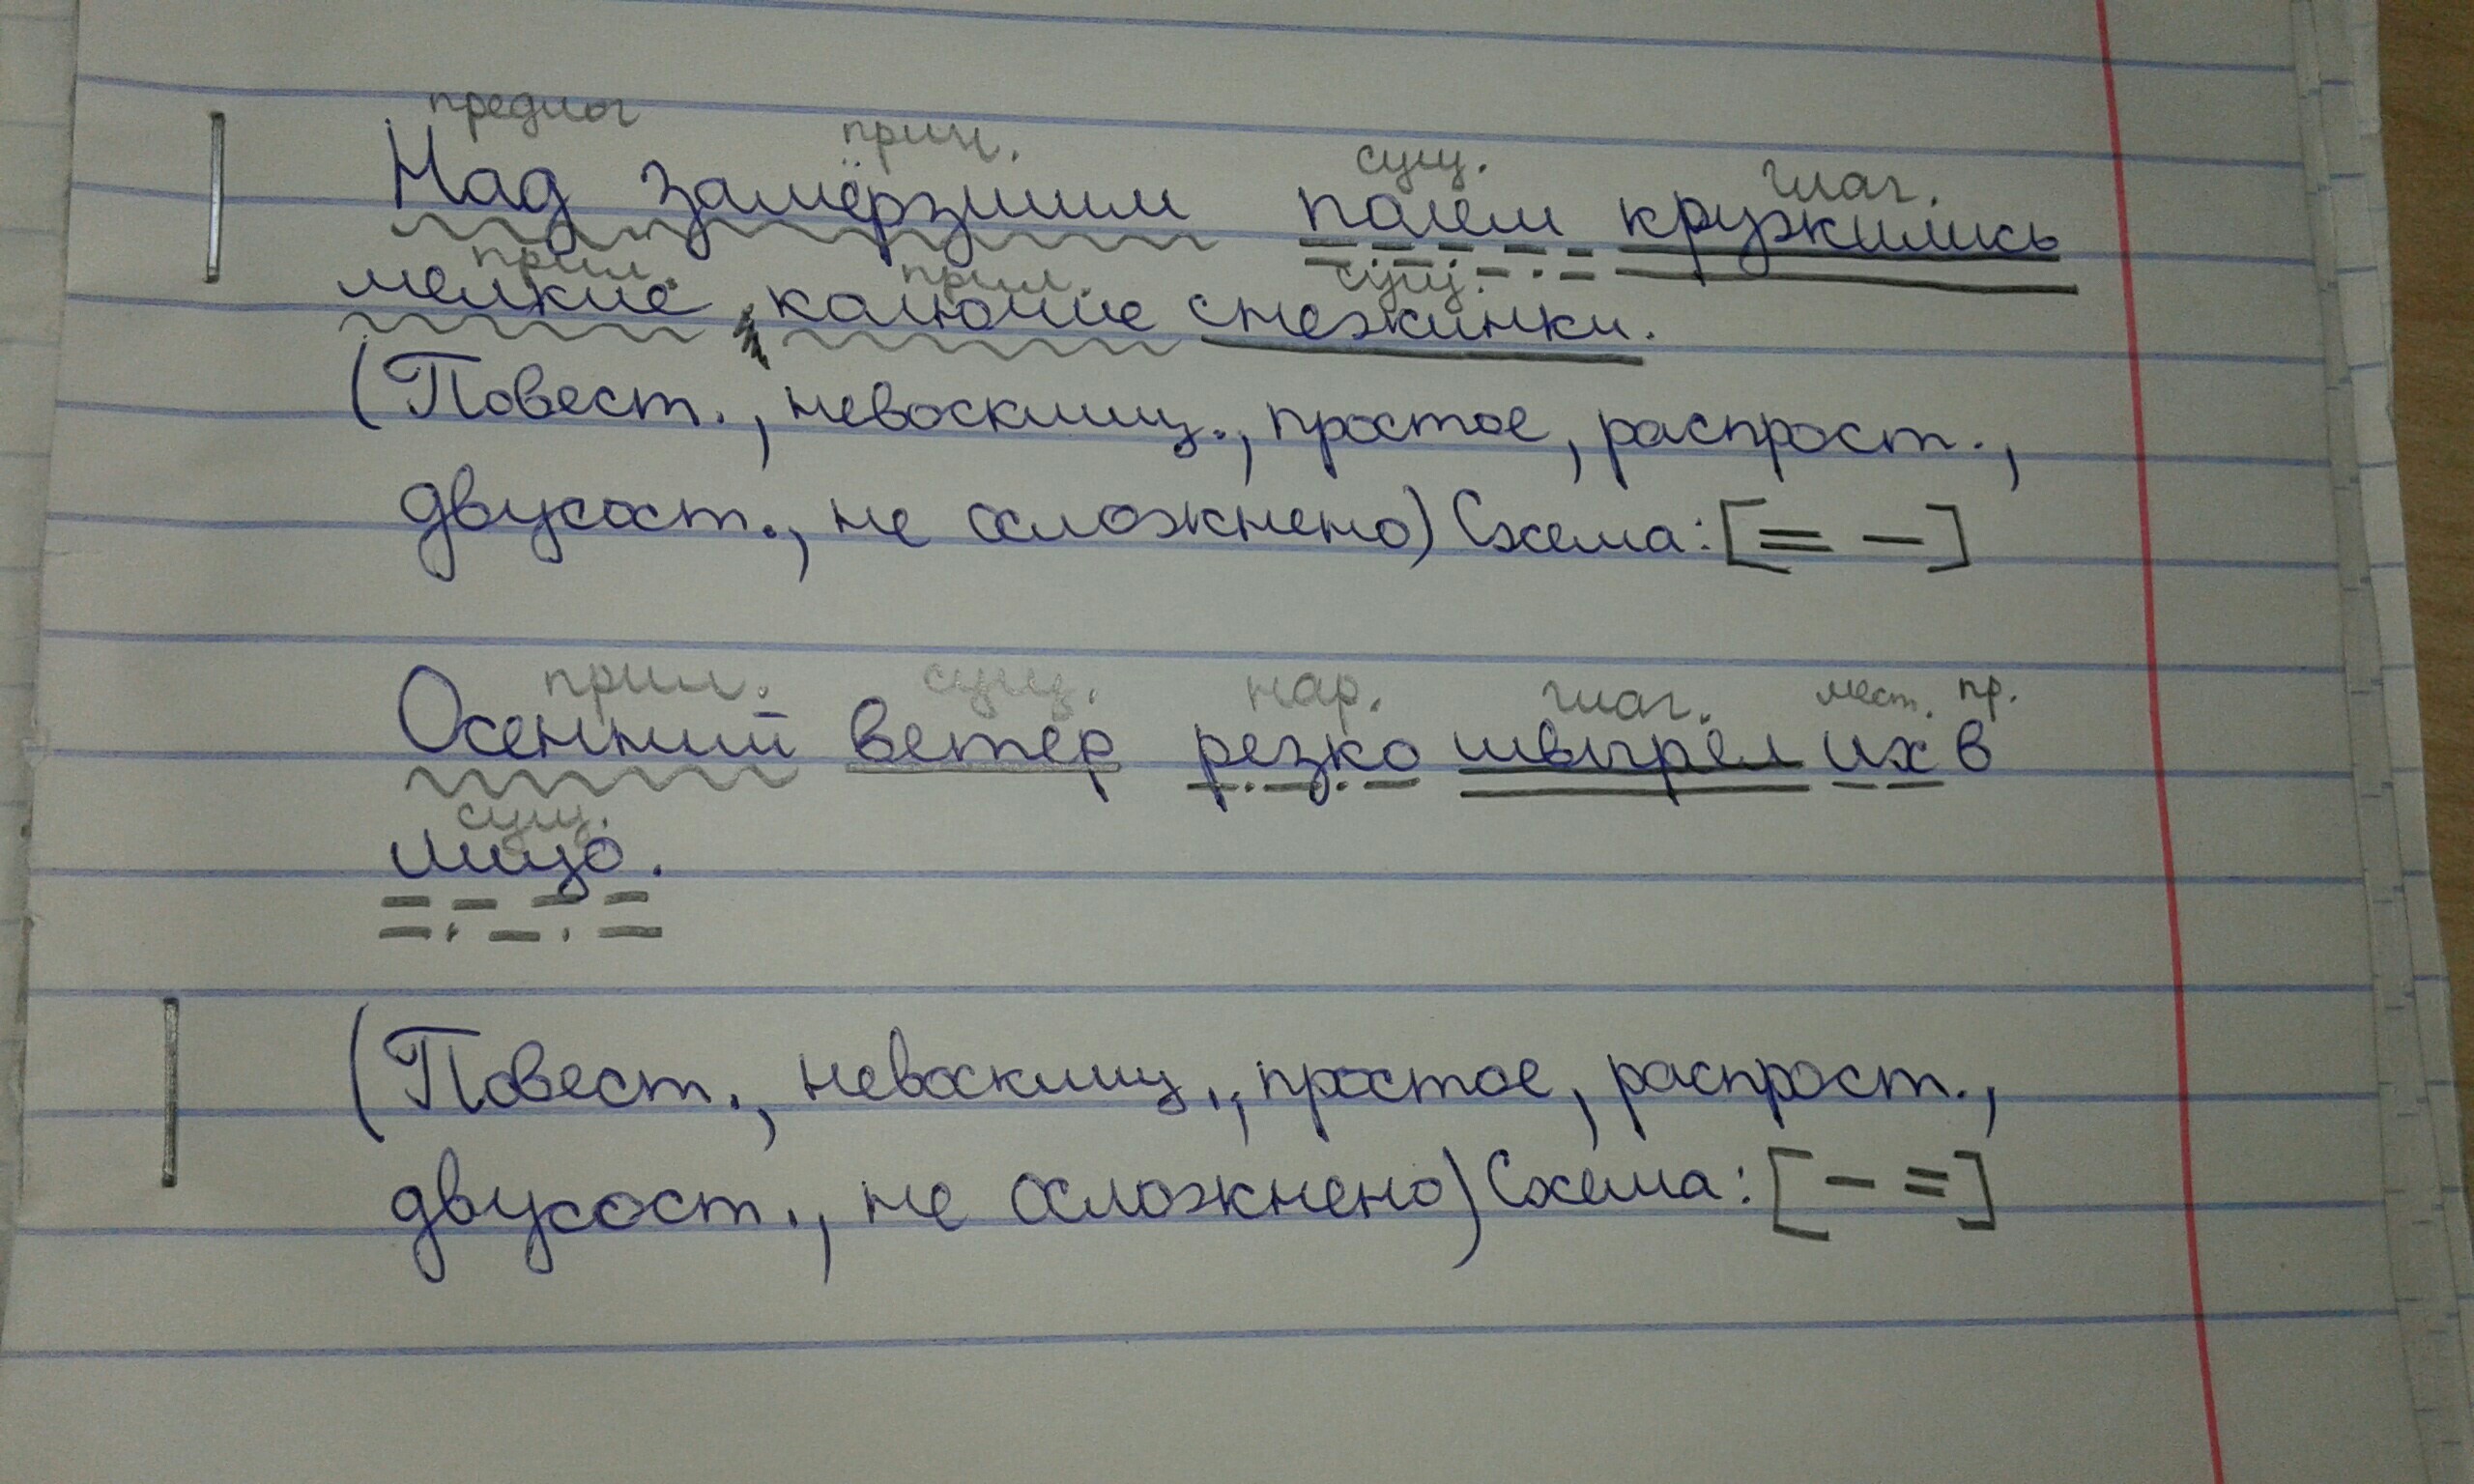 предлог прич. сущ. глаг.
Над замёрзшим полем кружились
прил. прил. сущ.
мелкие, колючие снежинки.
(Повест., невосклиц., простое, распрост.,
двусост., не осложнено) Схема: [= −]
прил. сущ. нар. глаг. мест. пр.
Осенний ветер резко швырял их в
сущ.
лицо.
(Повест., невосклиц., простое, распрост.,
двусост., не осложнено) Схема: [− =]